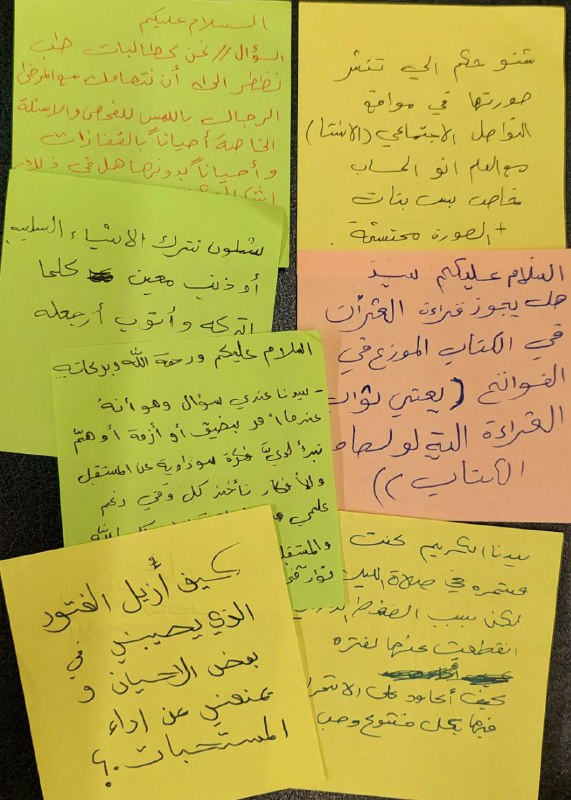 السلام عليكم
السؤال // نحن كطالبات طب
نضطر احيانا أن نتعامل مع المرضى
الرجال باللمس للفحص والاسئلة
الخاصة أحياناً بالقفازات
وأحياناً بدونها هل في ذلك
شنو حكم الي تنشر
صورتها في مواقع
التواصل الاجتماعي (الانستا)
مع العلم انو الحساب
خاص بس بنات
+ الصورة محتشمة.
شلون نترك الاشياء السلبيه
أو ذنب معين كلما
اتركه وأتوب أرجعله
السلام عليكم سيد
هل يجوز قراءة القرأن
في الكتاب الموزع في
الفواتح (يعني ثواب
القراءة الليه لو لصاحب
الكتاب)
السلام عليكم ورحمة الله وبركاته
- سيدنا عندي سؤال وهو أنهُ
عندما أمر بضيق أو أزمة أو همّ
تبدأ لديَّ فكرة سوداوية عن المستقبل
والأفكار تأخذ كل وقتي رغم
علمي
والمستقبل
كيف أُزيل الفتور
الذي يصيبني في
بعض الاحيان و
يمنعني عن اداء
المستحبات.؟
سيدنا الكريم كنت
مستمره في صلاة الليل
لكن بسبب الضغط
انقطعت عنها لفتره
كيف أعاود على
فيها بكل خشوع وحب